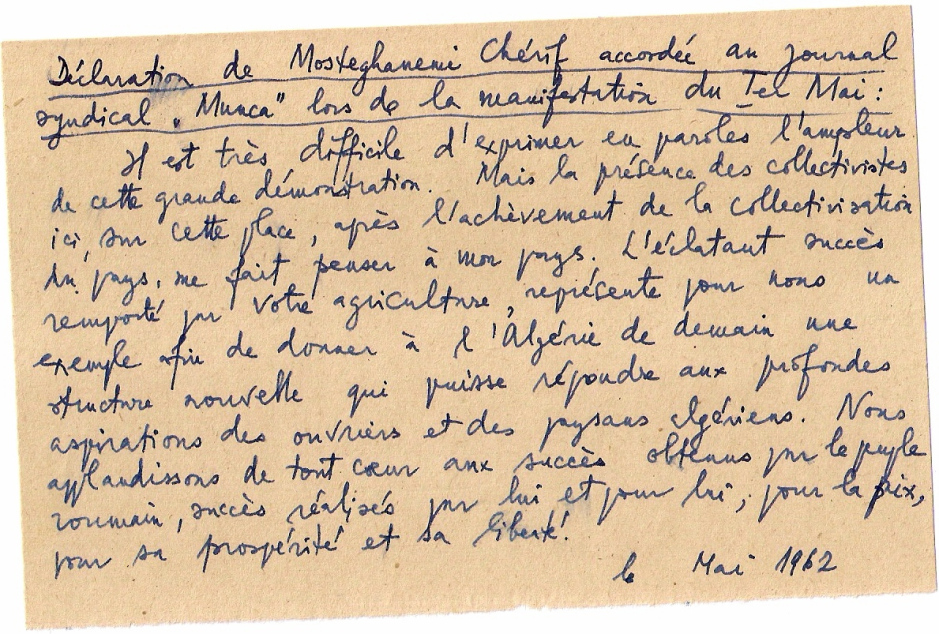 Déclaration de Mosteghanemi Chérif accordée au journal
syndical „Munca" lors de la manifestation du 1er Mai :
Il est très difficile d'exprimer en paroles l'ampleur
de cette grande démonstration. Mais la présence des collectivistes
ici sur cette place, après l'achèvement de la collectivisation
du pays, me fait penser à mon pays. L'éclatant succès
remporté par votre agriculture, représente pour nous un
exemple afin de donner à l'Algérie de demain une
structure nouvelle qui puisse répondre aux profondes
aspirations des ouvriers et des paysans algériens. Nous
applaudissons de tout cœur aux succès obtenus par le peuple
roumain, succès réalisés par lui et pour lui, pour la paix,
pour sa prospérité et sa liberté!
le Mai 1962